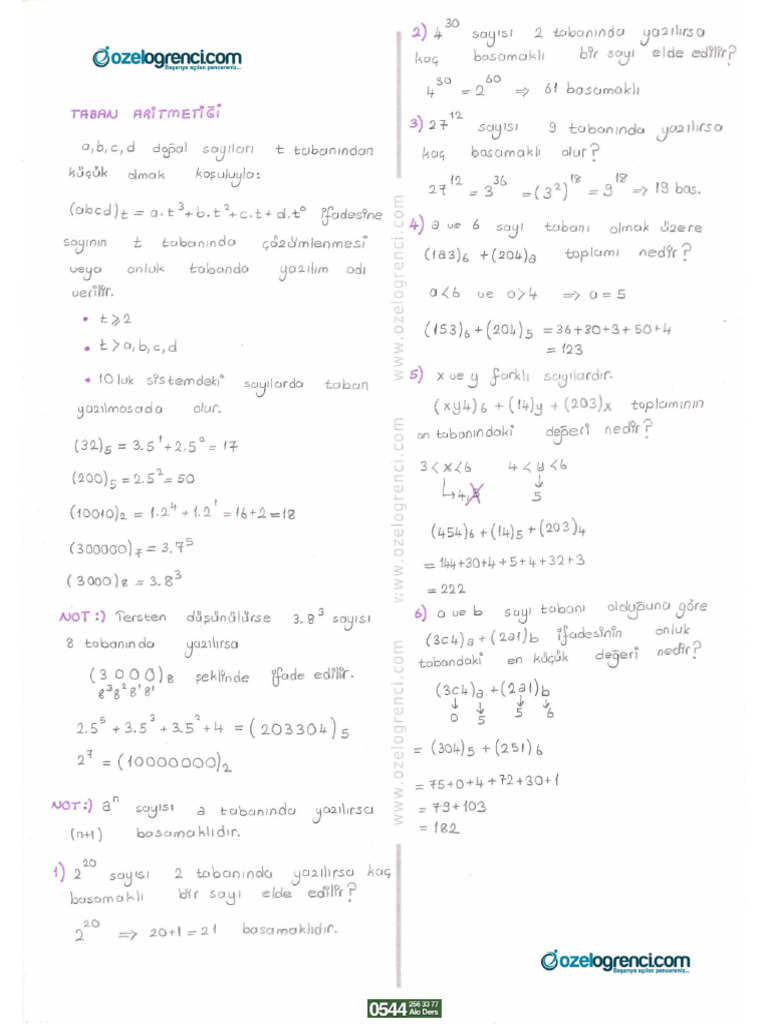 ozelogrenci.com
Başarıya açılan pencereniz...
TABAN ARİTMETİĞİ
a,b,c,d doğal sayıları t tabanından
küçük olmak koşuluyla:
(abcd)t = a.t³+b.t²+c.t+d.t⁰ ifadesine
sayının t tabanında çözümlenmesi
veya onluk tabanda yazılım adı
verilir.
• t⩾2
• t>a,b,c,d
• 10luk sistemdeki sayılarda taban
yazılmasada olur.
(32)₅ = 3.5¹+2.5⁰ = 17
(200)₅ = 2.5² = 50
(10010)₂ = 1.2⁴+1.2¹ = 16+2 = 18
(300000)₇ = 3.7⁵
(3000)₈ = 3.8³
NOT:) Tersten düşünülürse 3.8³ sayısı
8 tabanında yazılırsa
(3000)₈ şeklinde ifade edilir.
8³8²8¹8¹
2.5⁵ + 3.5³ + 3.5² + 4 = (203304)₅
2⁷ = (10000000)₂
NOT:) aⁿ sayısı a tabanında yazılırsa
(n+1) basamaklıdır.
1) 2²⁰ sayısı 2 tabanında yazılırsa kaç
basamaklı bir sayı elde edilir?
2²⁰ ⟹ 20+1 = 21 basamaklıdır.
2) 4³⁰ sayısı 2 tabanında yazılırsa
kaç basamaklı bir sayı elde edilir?
4³⁰ = 2⁶⁰ ⟹ 61 basamaklı
3) 27¹² sayısı 9 tabanında yazılırsa
kaç basamaklı olur?
27¹² = 3³⁶ = (3²)¹⁸ = 9¹⁸ ⟹ 19 bas.
4) a ve 6 sayı tabanı olmak üzere
(1a3)₆ + (204)a toplamı nedir?
a<6 ve a>4 ⟹ a = 5
(153)₆ + (204)₅ = 36+30+3+50+4
= 123
5) x ve y farklı sayılardır.
(xy4)₆ + (14)y + (203)x toplamının
on tabanındaki değeri nedir?
3<x<6 4<y<6
↳4,5 ↓
5
(454)₆ + (14)₅ + (203)₄
= 144+30+4+5+4+32+3
= 222
6) a ve b sayı tabanı olduğuna göre
(3c4)a + (2a1)b ifadesinin onluk
tabandaki en küçük değeri nedir?
(3c4)a + (2a1)b
↓ ↓ ↓ ↓
0 5 5 6
= (304)₅ + (251)₆
= 75+0+4+72+30+1
= 79+103
= 182
www.ozelogrenci.com
www.ozelogrenci.com
www.ozelogrenci.com
ozelogrenci.com
Başarıya açılan pencereniz...
0544 256 33 77
Alo Ders